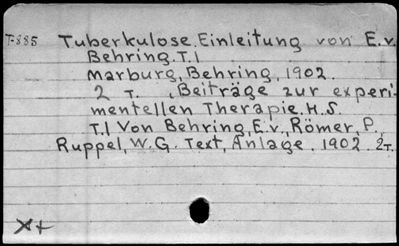 T-885 Tuberkulose. Einleitung von E.v.
Behring. T.1
Marburg, Behring, 1902.
2 T. , Beiträge zur experi-
mentellen Therapie. H.S.
T.1 Von Behring, E.v., Römer, P.,
Ruppel, W.G. Text, Anlage. 1902. 2T.
X+